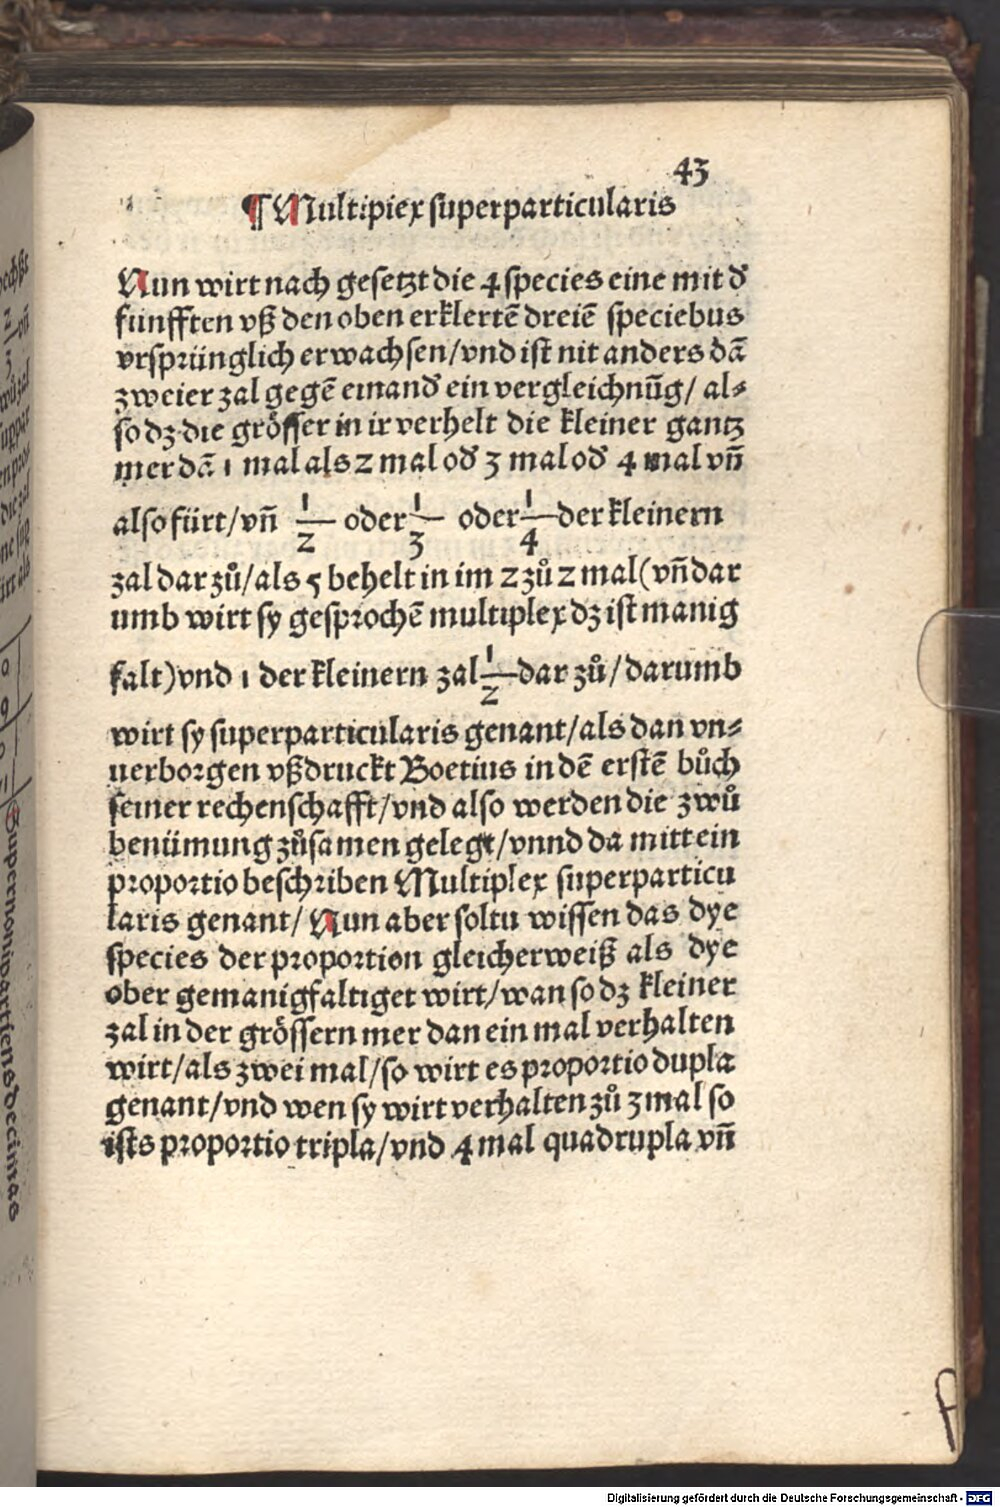 43
¶ Multipiex superparticularis
Nun wirt nach gesetzt die 4 species eine mit đ
funfften vß den oben erklertē dreiē speciebus
vrsprünglich erwachsen/vnd ist nit anders dā
zweier zal gegē einanđ ein vergleichnūg/ al⸗
so dz die grösser in ir verhelt die kleiner gantz
mer dā 1 mal als 2 mal ođ 3 mal ođ 4 mal vn̄
also fürt/vn̄ 1/2 oder 1/3 oder 1/4 der kleinern
zal dar zů/als 5 behelt in im 2 zů 2 mal (vn̄ dar
umb wirt sy gesprochē multiplex dz ist manig
falt) vnd 1 der kleinern zal 1/2 dar zů/darumb
wirt sy superparticularis genant/als dan vn⸗
uerborgen vßdruckt Boetius in dē erstē bůch
seiner rechenschafft/vnd also werden die zwů
benümung zůsamen gelegt/vnnd da mitt ein
proportio beschriben Multiplex superparticu
laris genant/ Nun aber soltu wissen das dye
species der proportion gleicherweiß als dye
ober gemanigfaltiget wirt/wan so dz kleiner
zal in der grössern mer dan ein mal verhalten
wirt/als zwei mal/so wirt es proportio dupla
genant/vnd wen sy wirt verhalten zů 3 mal so
ists proportio tripla/vnd 4 mal quadrupla vn̄
Digitalisierung gefördert durch die Deutsche Forschungsgemeinschaft - DFG